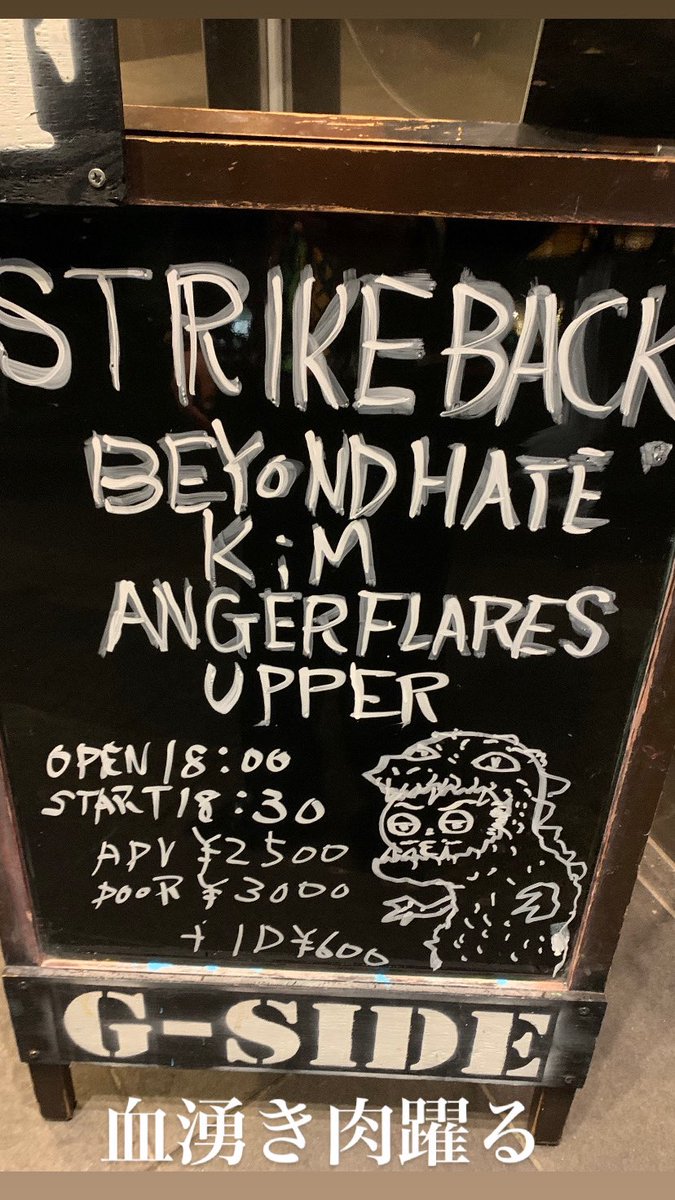 STRIKE BACK
BEYOND HATE
KiM
ANGERFLARES
UPPER
OPEN 18:00
START 18:30
ADV ¥2500
DOOR ¥3000
+ 1D ¥600
G-SIDE
血湧き肉躍る